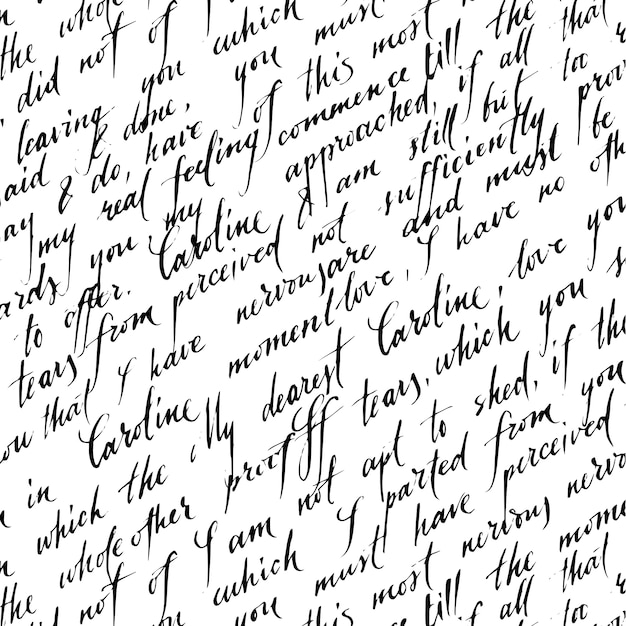 the whole of which must the that
did not of you must most till the that
leaving you of this most if all too
said & done, you commence approached, if all too prov
ay & do, have feeling am still but
my real my & sufficiently be
ards you Caroline not and must be
to offer. perceived are I have no oth
tears from nervous love, love you
ou that I have moment Caroline, you s
Caroline My dearest tears, which if the
in which the proof off to shed, you
the whole other not apt from perceived
did not of I am I parted nervous nervo
the which must have the mome
you this most till that